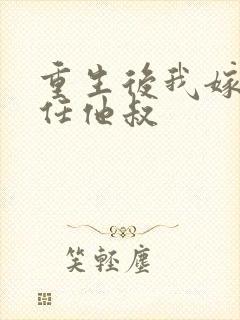 重生後我嫁
任他叔
笑輕塵